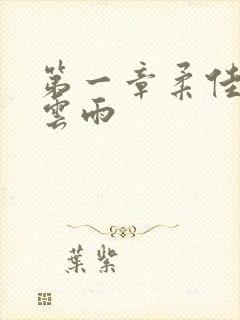 第一章柔佳
雲雨
葉紫